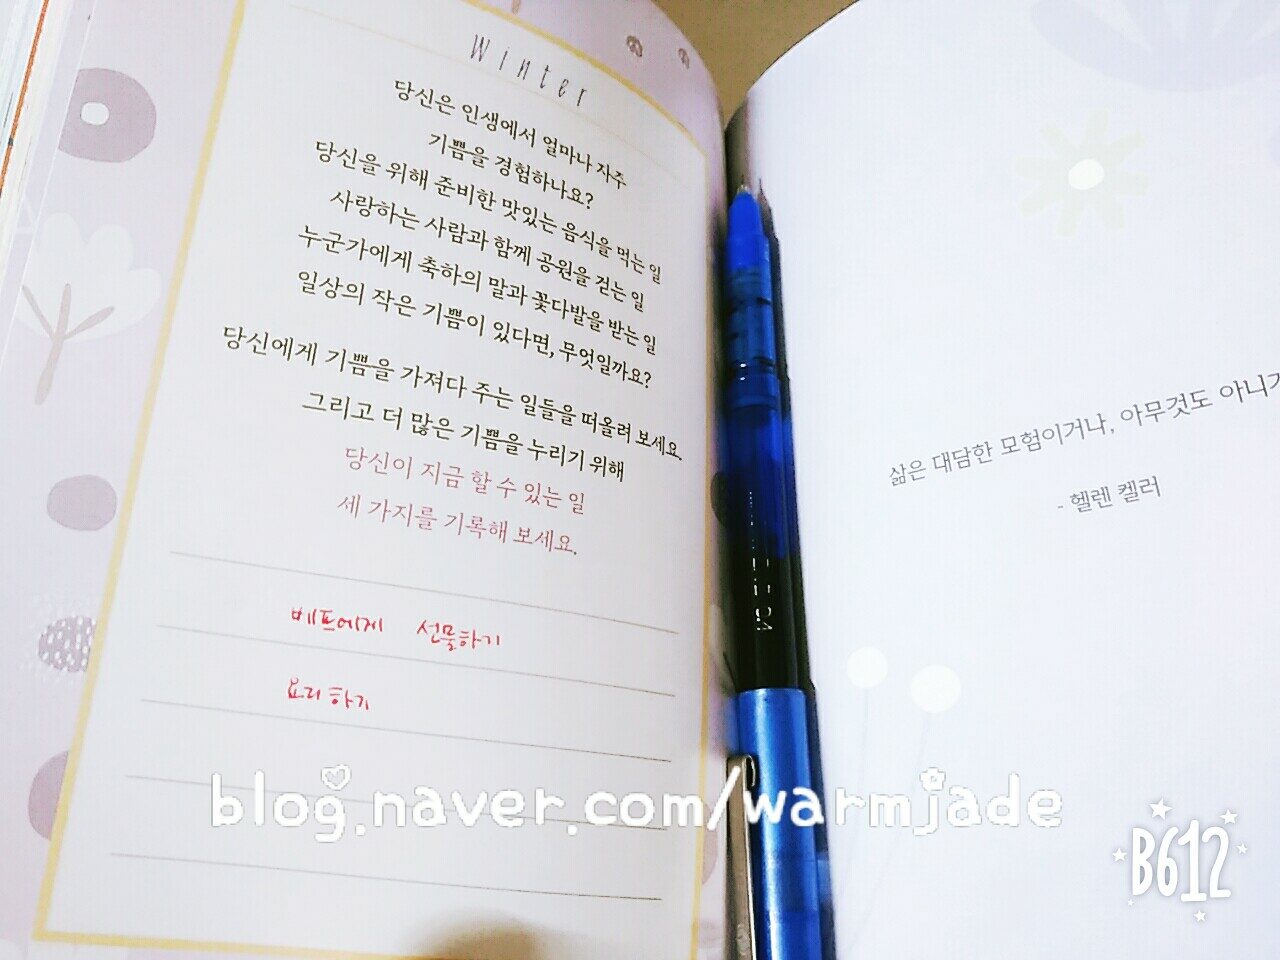 Winter
당신은 인생에서 얼마나 자주
기쁨을 경험하나요?
당신을 위해 준비한 맛있는 음식을 먹는 일
사랑하는 사람과 함께 공원을 걷는 일
누군가에게 축하의 말과 꽃다발을 받는 일
일상의 작은 기쁨이 있다면, 무엇일까요?
당신에게 기쁨을 가져다 주는 일들을 떠올려 보세요.
그리고 더 많은 기쁨을 누리기 위해
당신이 지금 할 수 있는 일
세 가지를 기록해 보세요.
베프에게 선물하기
요리하기
삶은 대담한 모험이거나, 아무것도 아니거
- 헬렌 켈러
blog.naver.com/warmjade
B612